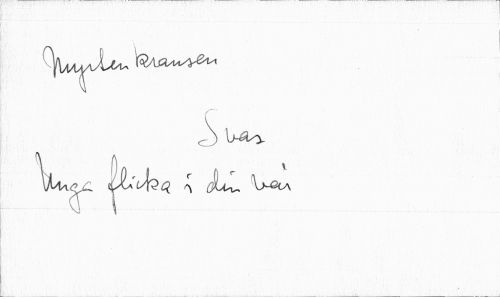 Myrtenkransen
Svas
Unga flicka i din vår